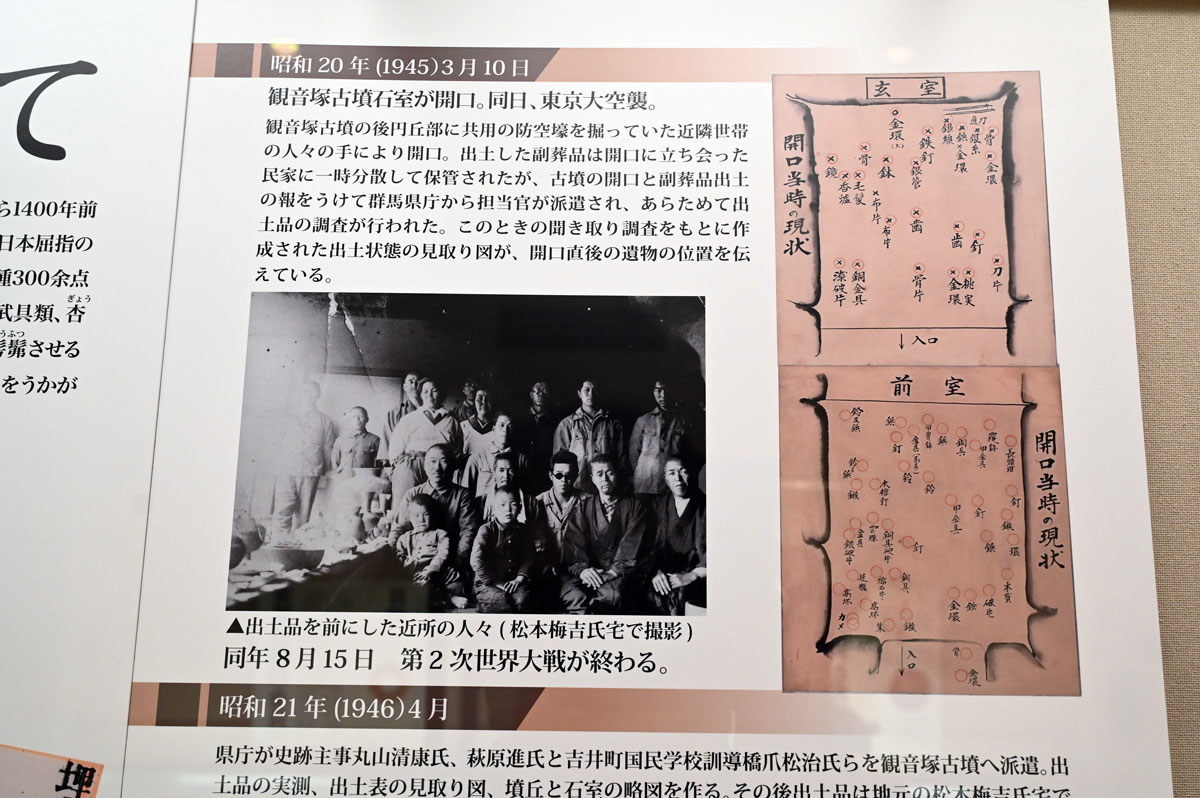 て
ら1400年前
日本屈指の
種300余点
武具類、杏
ぎょう
髣髴させる
をうかが
昭和20年(1945)3月10日
観音塚古墳石室が開口。同日、東京大空襲。
観音塚古墳の後円丘部に共用の防空壕を掘っていた近隣世帯
の人々の手により開口。出土した副葬品は開口に立ち会った
民家に一時分散して保管されたが、古墳の開口と副葬品出土
の報をうけて群馬県庁から担当官が派遣され、あらためて出
土品の調査が行われた。このときの聞き取り調査をもとに作
成された出土状態の見取り図が、開口直後の遺物の位置を伝
えている。
▲出土品を前にした近所の人々(松本梅吉氏宅で撮影)
同年8月15日　第2次世界大戦が終わる。
昭和21年(1946)4月
県庁が史跡主事丸山清康氏、萩原進氏と吉井町国民学校訓導橋爪松治氏らを観音塚古墳へ派遣。出
土品の実測、出土表の見取り図、墳丘と石室の略図を作る。その後出土品は地元の松本梅吉氏宅で
玄室
開口当時の現状
金環
銀線
直刀
鋲
金環
銀糸
骨
金環
鉄釘
骨
鉢
銀管
鏡
香爐
毛髪
布片
布片
歯
歯
釘
刀片
漆破片
銅金具
骨片
金環
桃実
↓入口
前室
開口当時の現状
鈴
鋲
釘
鈴
鈴
木棺釘
甲金具
釘
釘
銅破片
釘
環
木質
高坏
高坏
カメ
朱
金環
鋲
↓入口
骨
金環
埋